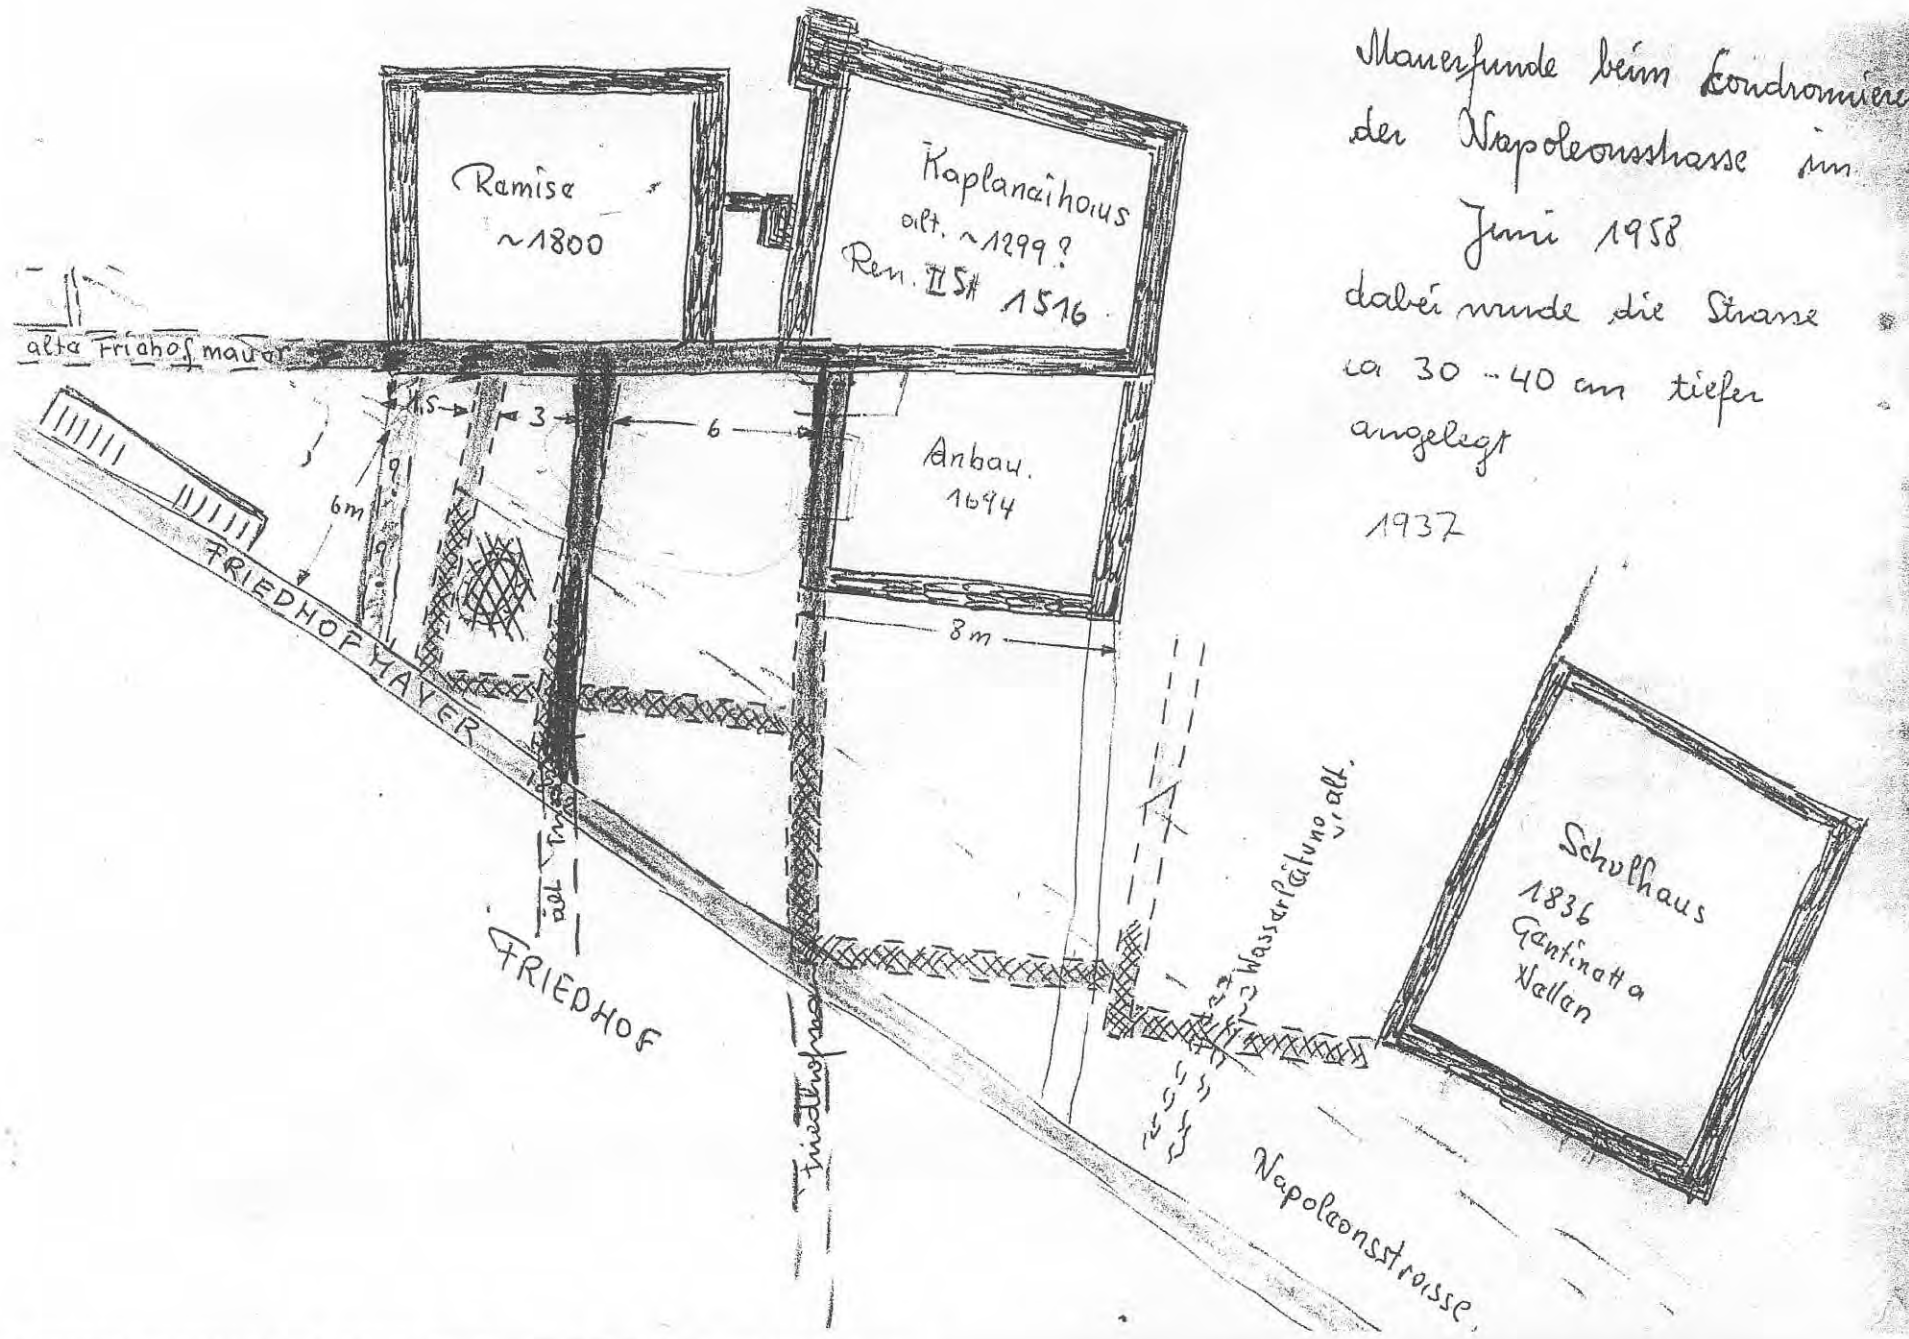 Mauerfunde beim Kondromieren
der Napoleonsstrasse im
Juni 1958
dabei wurde die Strasse
ca 30--40 cm tiefer
angelegt
1937
Remise
~1800
Kaplaneihaus
alt. ~1299?
Ren. 1516
alte Friehofmauer
1,5
3
6
6m
Anbau.
1694
8m
FRIEDHOF MAUER
FRIEDHOF
Friedhofmau
Wasserleitung alt.
Schulhaus
1836
Napoleonsstrasse.